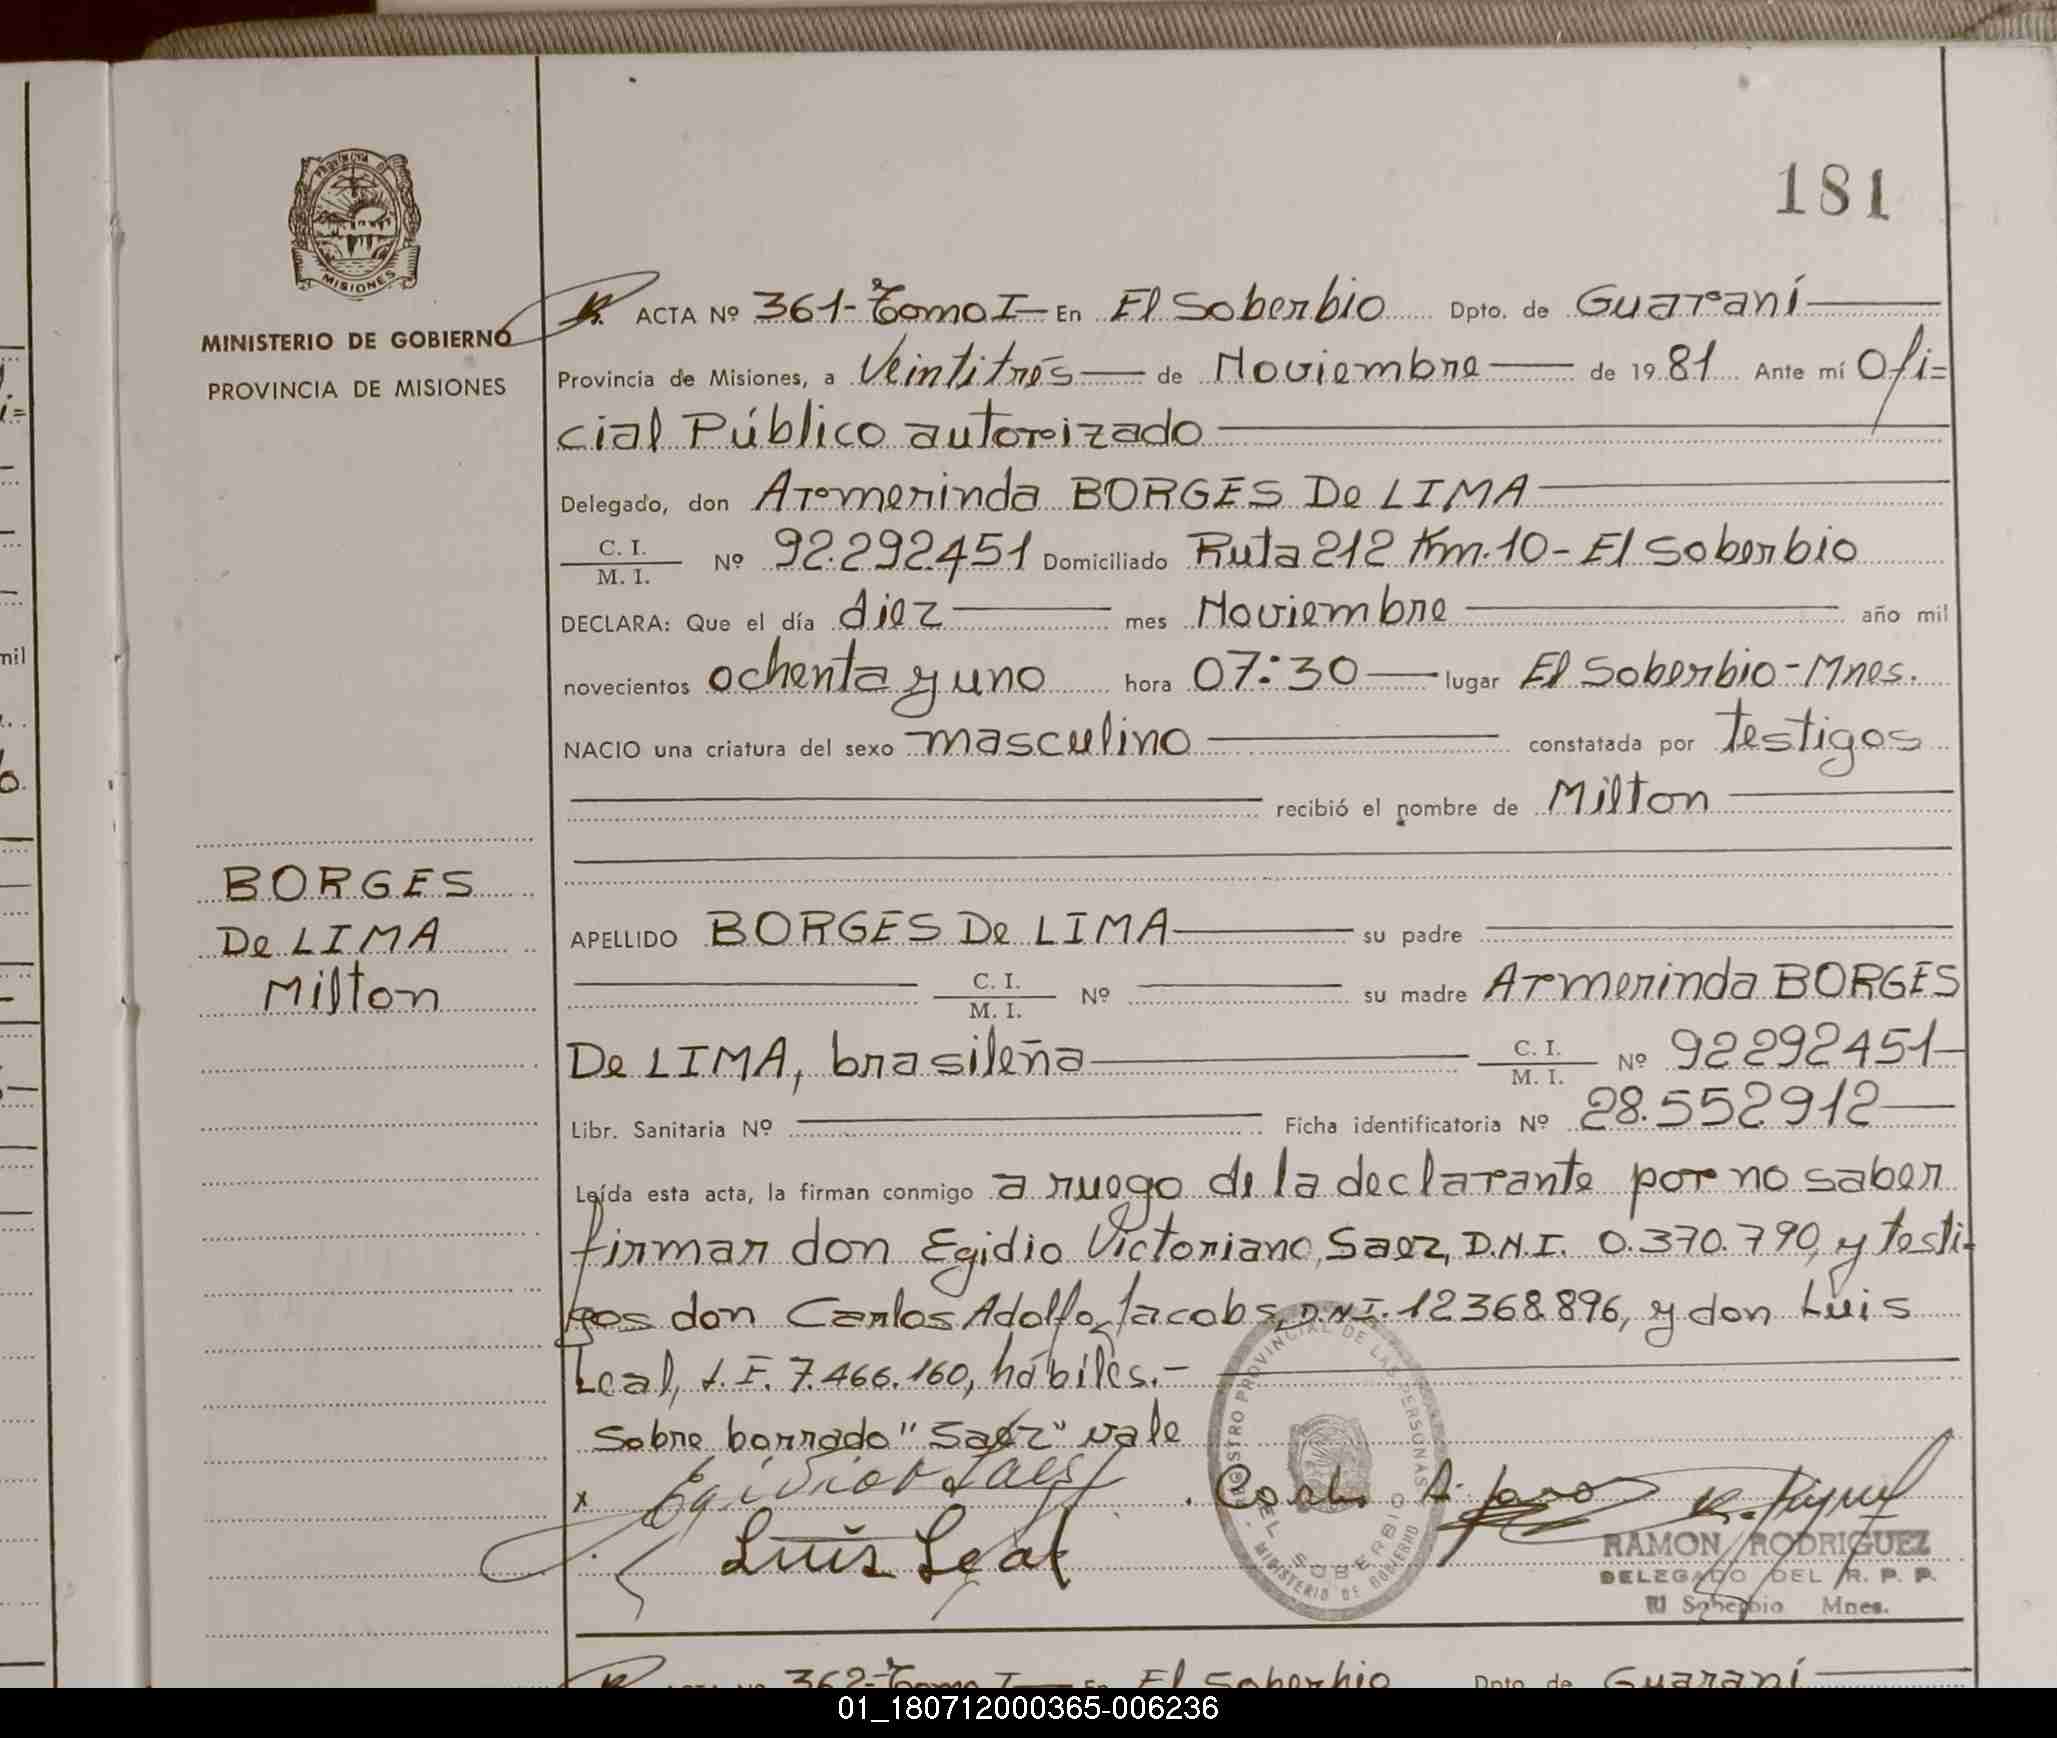 181
PROVINCIA DE
MISIONES
MINISTERIO DE GOBIERNO
PROVINCIA DE MISIONES
ACTA Nº 361-Tomo I- En El Soberbio Dpto. de Guaraní
Provincia de Misiones, a Veintitrés de Noviembre de 1981 Ante mí Ofi=
cial Público autorizado
Delegado, don Armerinda BORGES De LIMA
C. I.
M. I. Nº 92.292.451 Domiciliado Ruta 212 Km.10- El Soberbio
DECLARA: Que el día diez mes Noviembre año mil
novecientos ochenta y uno hora 07:30 lugar El Soberbio-Mnes.
NACIO una criatura del sexo masculino constatada por testigos
recibió el nombre de Milton
BORGES
De LIMA
Milton
APELLIDO BORGES De LIMA su padre
C. I.
M. I. Nº su madre Armerinda BORGES
De LIMA, brasileña C. I.
M. I. Nº 92292451
Libr. Sanitaria Nº Ficha identificatoria Nº 28.552.912
Leída esta acta, la firman conmigo a ruego de la declarante por no saber
firmar don Egidio Victoriano, Saez, D.N.I. 0.370.790, y testi-
gos don Carlos Adolfo Jacobs, D.N.I. 12368896, y don Luis
Leal, L.E. 7.466.160, hábiles.-
Sobre borrado "Saez" vale
x
Luis Leal
REGISTRO PROVINCIAL DE LAS PERSONAS
EL SOBERBIO
MINISTERIO DE GOBIERNO
RAMON RODRIGUEZ
DELEGADO DEL R. P. P.
El Soberbio Mnes.
362-Tomo I- En El Soberbio Dpto. de Guaraní
01_180712000365-006236